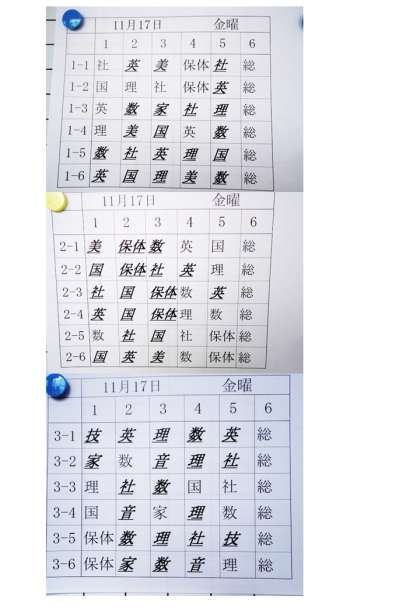 11月17日 金曜
1 2 3 4 5 6
1-1 社 英 美 保体 社 総
1-2 国 理 社 保体 英 総
1-3 英 数 家 社 理 総
1-4 理 美 国 英 数 総
1-5 数 社 英 理 国 総
1-6 英 国 理 美 数 総
11月17日 金曜
1 2 3 4 5 6
2-1 美 保体 数 英 国 総
2-2 国 保体 社 英 理 総
2-3 社 国 保体 数 英 総
2-4 英 国 保体 理 数 総
2-5 数 社 国 社 保体 総
2-6 国 英 美 数 保体 総
11月17日 金曜
1 2 3 4 5 6
3-1 技 英 理 数 英 総
3-2 家 数 音 理 社 総
3-3 理 社 数 国 社 総
3-4 国 音 家 理 数 総
3-5 保体 数 理 社 技 総
3-6 保体 家 数 音 理 総